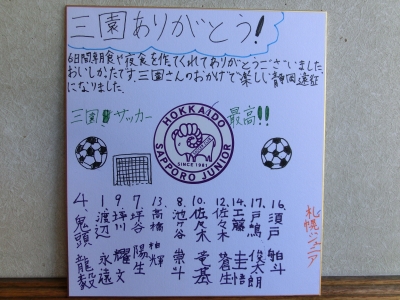 三園ありがとう!
6日間朝食や夜食を作てくれてありがとうございました。
おいしかたです。三園さんのおかげで楽しい静岡遠征
になりました。
三園 サッカー 最高!!
HOKKAIDO
SINCE 1981
SAPPORO JUNIOR
4. 鬼頭 龍毅
1. 渡辺 永遠
9. 坪川 耀文
7. 坪谷 陽生
13. 高橋 柏輝
8. 池ヶ谷 崇斗
10. 佐々木 竜基
12. 佐々木 蒼生
14. 工藤 圭悟
17. 戸嶋 俊太朗
16. 須戸 舶斗
札幌ジュニア